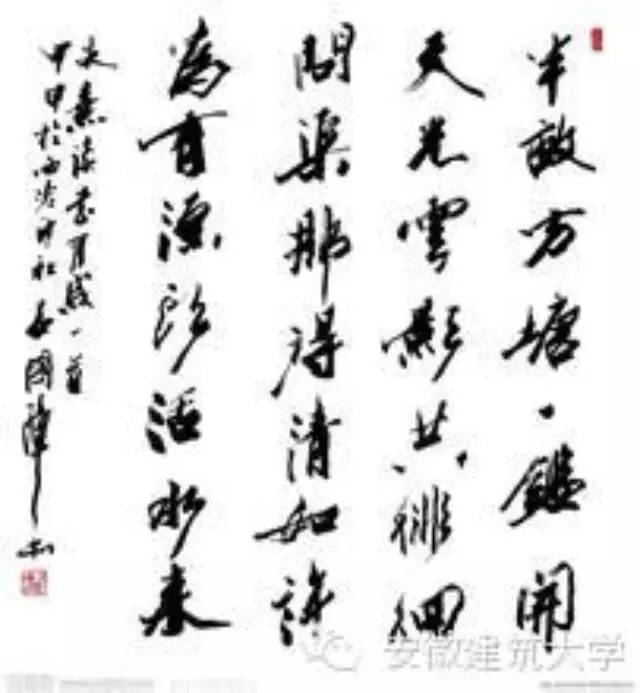 半畝方塘一鑑開
天光雲影共徘徊
問渠那得清如許
為有源頭活水來
朱熹讀書有感一首
甲申於西泠印社
安徽建筑大学